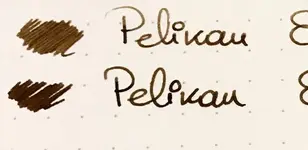 Pelikan
Pelikan